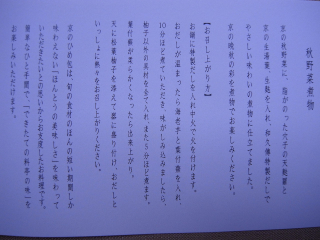 秋野菜煮物
京の秋野菜に、脂がのった穴子の天麩羅と
京の生湯葉、生麩を入れ、和久傳特製だしで、
やさしい味わいの煮物に仕立てました。
京の晩秋の彩を煮物でお楽しみください。
【お召し上がり方】
お鍋に特製だしを入れ中火で火を付けます。
おだしが温まったら海老芋と葉付蕪を入れ、
10分ほど煮ていただき、味がしみ込みましたら、
柚子以外の具材を全て入れ、また5分ほど煮ます。
葉付蕪が柔らかくなったら出来上がり。
天に松葉柚子を添えて器に盛り付け、おだしと
いっしょに熱々をお召し上がりください。
京のひめ包は、旬の食材のほんの短い期間しか
味わえない「ほんとうの美味しさ」を味わって
いただきたいとの想いからお作りしたお料理です。
簡単なひと手間で、「できたての料亭の味」を
お楽しみいただけます。